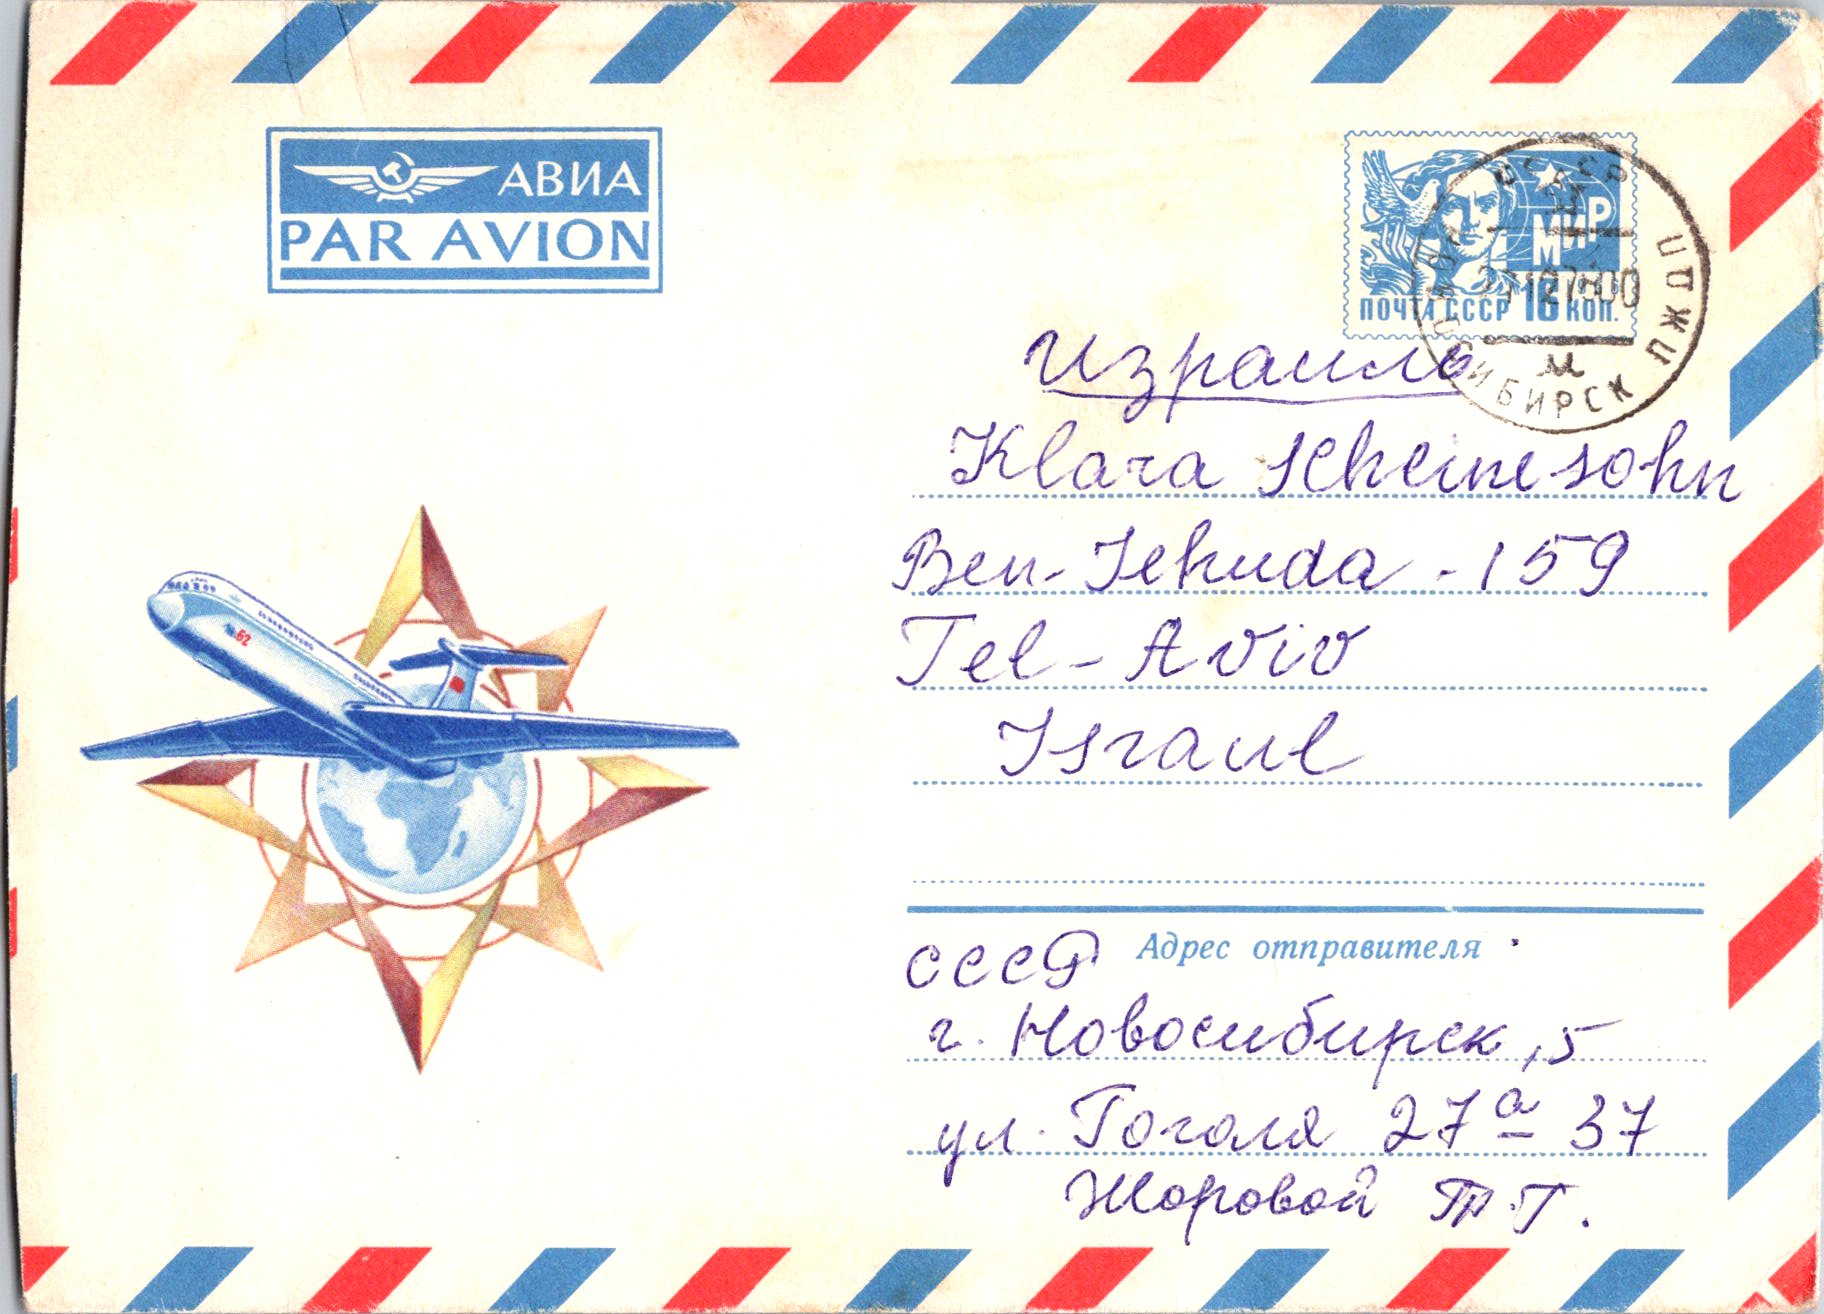 АВИА
PAR AVION
МИР
ПОЧТА СССР 16 КОП.
СССР
НОВОСИБИРСК ПЖДП
Израиль
Klara Scheinesohn
Ben-Jehuda - 159
Tel-Aviv
Israul
62
Адрес отправителя
СССР
г. Новосибирск, 5
ул. Гоголя 27а 37
Жоровой Гр. Т.